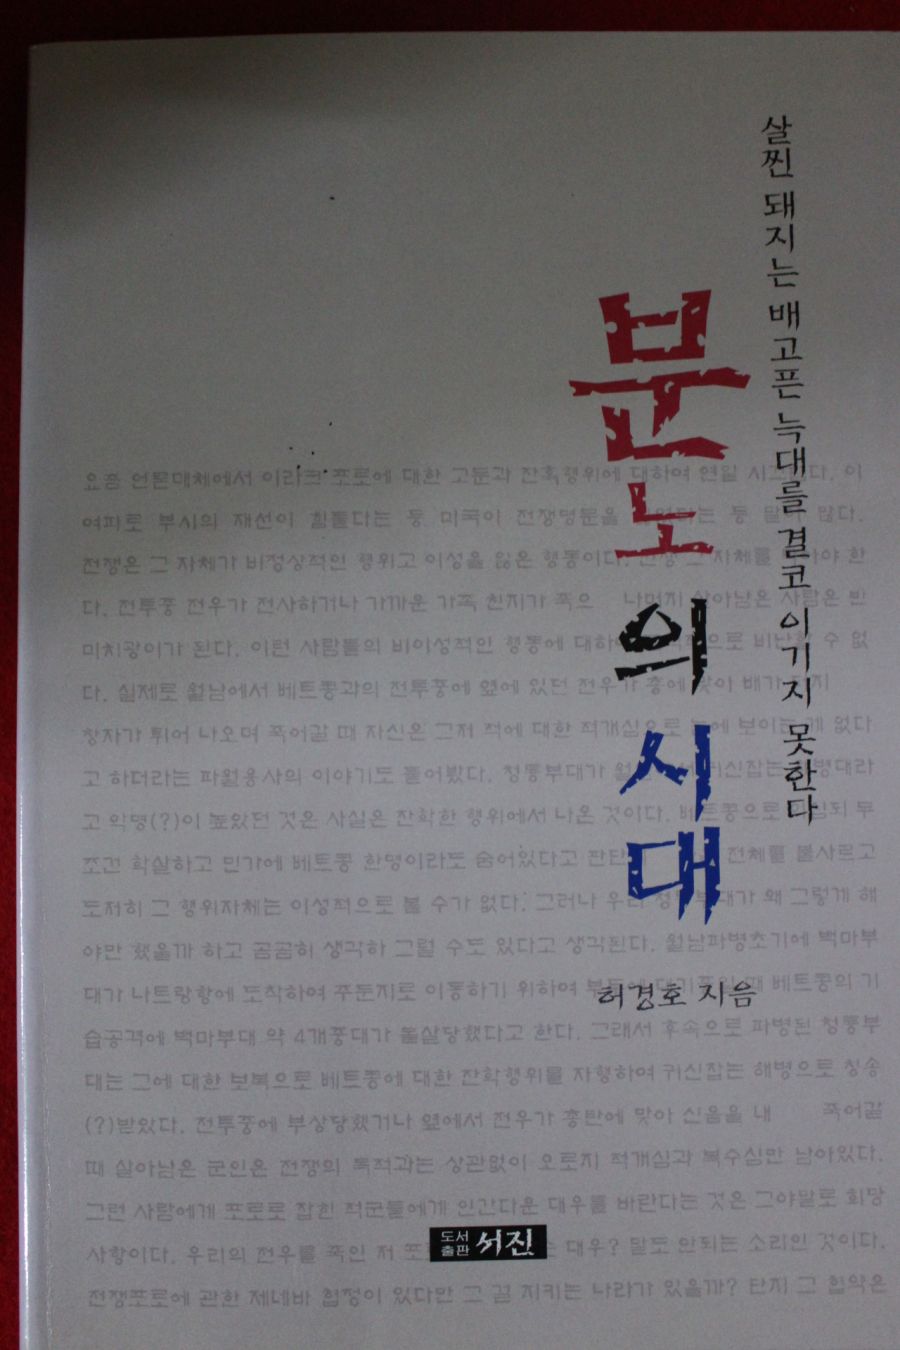 살찐 돼지는 배고픈 늑대를 결코 이기지 못한다
분노의 시대
허경호 지음
요즘 언론매체에서 이라크 포로에 대한 고문과 잔혹행위에 대하여 연일 시끄럽다. 이
여파로 부시의 재선이 힘들다는 둥 미국이 전쟁명분을 는 둥 말이 많다.
전쟁은 그 자체가 비정상적인 행위고 이성을 잃은 행동이다. 전쟁 그 자체를 야 한
다. 전투중 전우가 전사하거나 가까운 가족 친지가 죽으 나머지 살아남은 사람은 반
미치광이가 된다. 이런 사람들의 비이성적인 행동에 대하 으로 비난할 수 없
다. 실제로 월남에서 베트콩과의 전투중에 옆에 있던 전우가 총에 맞아 배가 지
창자가 튀어 나오며 죽어갈 때 자신은 그저 적에 대한 적개심으로 눈에 보이는 게 없다
고 하더라는 파월용사의 이야기도 들어봤다. 청룡부대가 월 귀신잡는 해병대라
고 악명(?)이 높았던 것은 사실은 잔학한 행위에서 나온 것이다. 베트콩으로 되 무
조건 학살하고 민가에 베트콩 한명이라도 숨어있다고 판단 전체를 불사르고
도저히 그 행위자체는 이성적으로 볼 수가 없다. 그러나 우리 청룡부대가 왜 그렇게 해
야만 했을까 하고 곰곰히 생각하 그럴 수도 있다고 생각된다. 월남파병초기에 백마부
대가 나트랑항에 도착하여 주둔지로 이동하기 위하여 부두에 대기중일 때 베트콩의 기
습공격에 백마부대 약 4개중대가 몰살당했다고 한다. 그래서 후속으로 파병된 청룡부
대는 그에 대한 보복으로 베트콩에 대한 잔학행위를 자행하여 귀신잡는 해병으로 칭송
(?)받았다. 전투중에 부상당했거나 옆에서 전우가 총탄에 맞아 신음을 내 죽어갈
때 살아남은 군인은 전쟁의 목적과는 상관없이 오로지 적개심과 복수심만 남아있다.
그런 사람에게 포로로 잡힌 적군들에게 인간다운 대우를 바란다는 것은 그야말로 희망
사항이다. 우리의 전우를 죽인 저 포 는 대우? 말도 안되는 소리인 것이다.
전쟁포로에 관한 제네바 협정이 있다만 그 걸 지키는 나라가 있을까? 단지 그 협약은
도서출판 서진